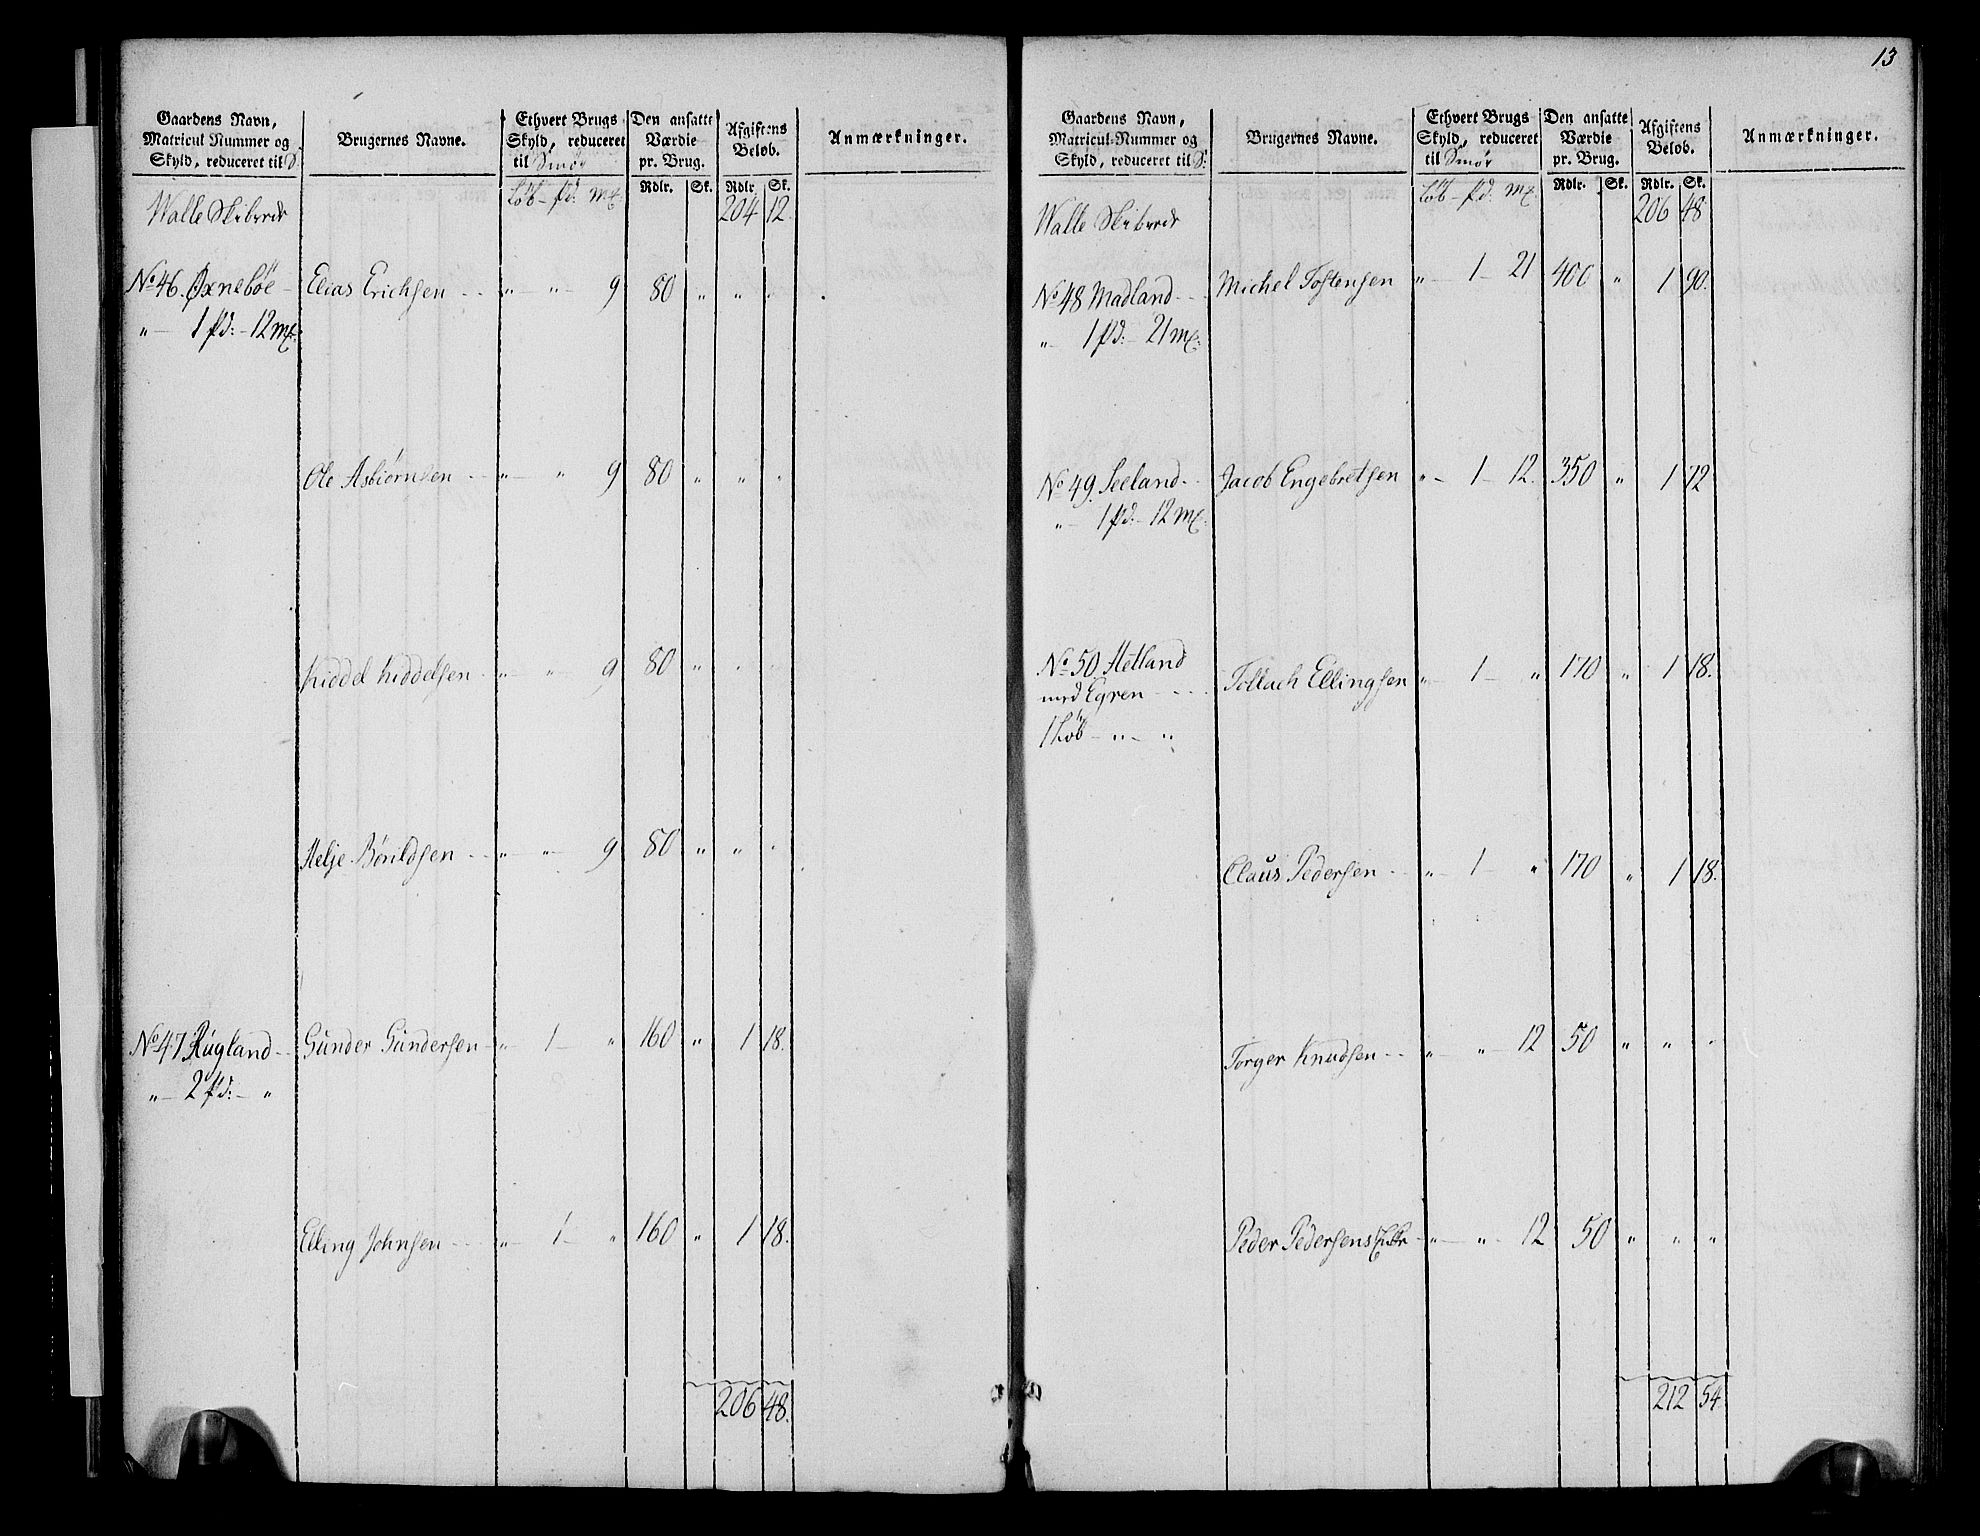 13
Gaardens Navn, Matricul Nummer og Skyld, reduceret til S: | Brugernes Navne. | Ethvert Brugs Skyld, reduceret til Smør | Den ansatte Værdie pr. Brug. | Afgiftens Beløb. | Anmærkninger.
Löb - pd: mk: | Rdlr. | Sk. | Rdlr. | Sk.
Walle Skibrede 204 12.
No 46. Øxneböe - Elias Erichsen - - „ - „ - 9 80 „ „ „
„ - 1 pd: - 12 mk:
Ole Asbiørnsen - - „ - „ 9 80 „ „ „
Kiddel Kiddelsen - „ - „ - 9 80 „ „ „
Helje Bönildsen - - „ - „ - 9 80 „ „ „
No 47 Rugland - - Gunder Gundersen - „ - 1 - „ 160 „ 1 18.
„ - 2 pd: - „
Elling Johnsen - - „ - 1 - „ 160 „ 1 18.
206 48.
Gaardens Navn, Matricul-Nummer og Skyld, reduceret til S: | Brugernes Navne. | Ethvert Brugs Skyld, reduceret til Smør | Den ansatte Værdie pr. Brug. | Afgiftens Beløb. | Anmærkninger.
Löb - pd: mk: | Rdlr. | Sk. | Rdlr. | Sk.
Walle Skibrede 206 48
No 48 Madland - - Michel Tostensen „ - 1 - 21 400 „ 1 90.
„ - 1 pd: - 21 mk:
No 49. Seeland - - Jacob Engebretsen „ - 1 - 12. 350 „ 1 72
„ - 1 pd: - 12 mk:
No 50 Hetland Tollach Ellingsen „ - 1 - „ 170 „ 1 18.
med Egren - - -
1 Löb - „ - „
Claus Pedersen - - „ - 1 - „ 170 „ 1 18.
Torger Knudsen - - „ - „ - 12 50 „ „ „
Peder Pedersens - „ - „ - 12 50 „ „ „
212 54.